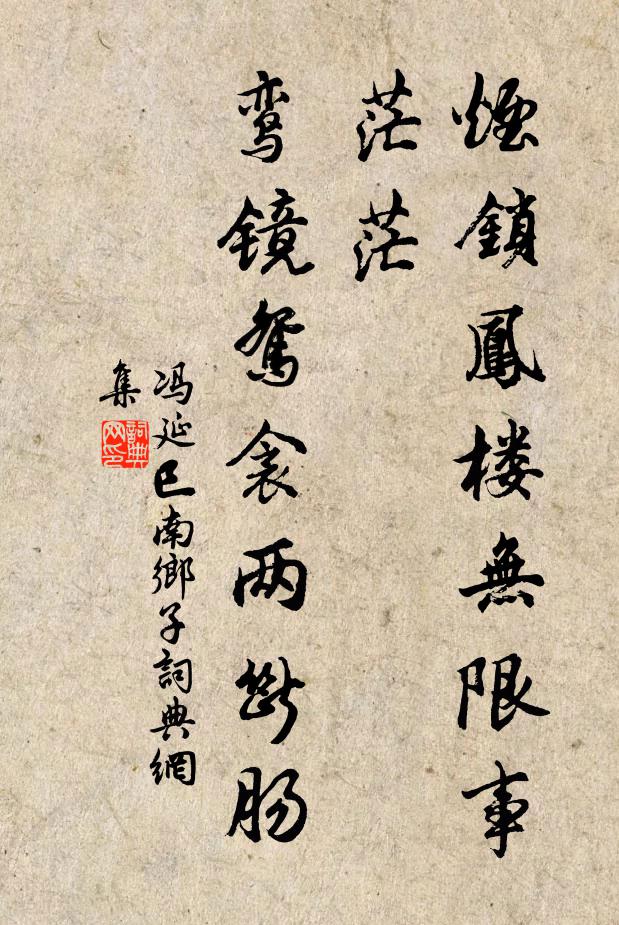 煙鎖鳳楼無限事
茫茫
鸾镜鸳衾两斷肠
冯延巳南鄉子詞典網
集
詞典网印